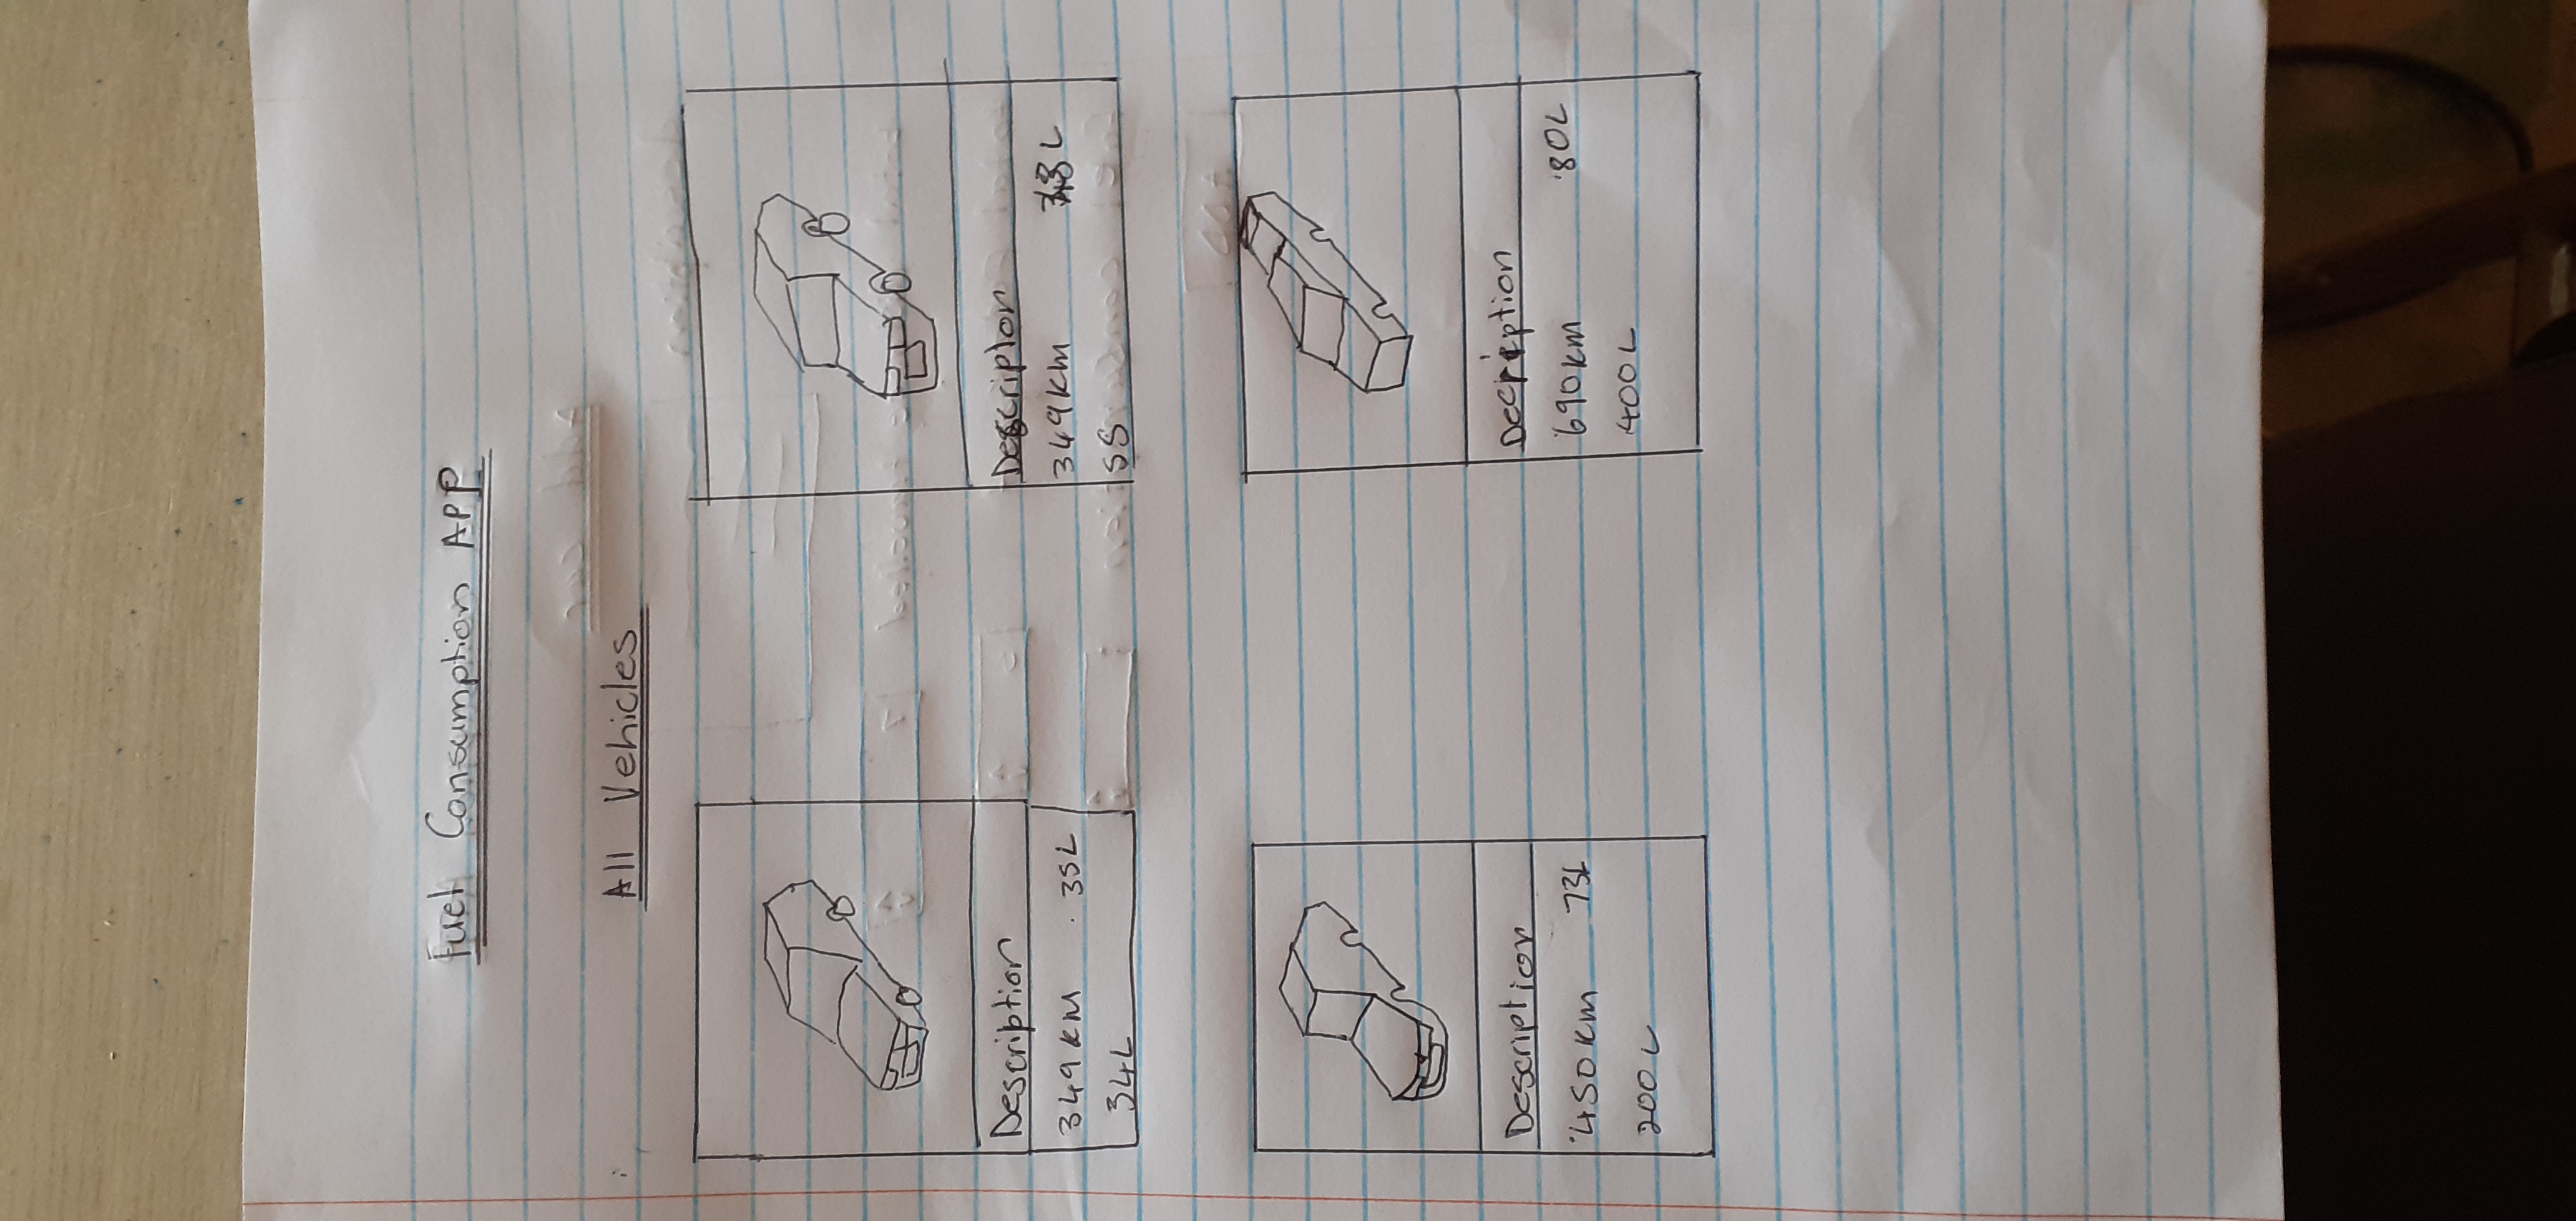 Fuel Consumption APP
All Vehicles
Description
349KM 35L
34L
Description
349KM L
55
Description
450KM 73L
200L
Decription
690KM 80L
400L